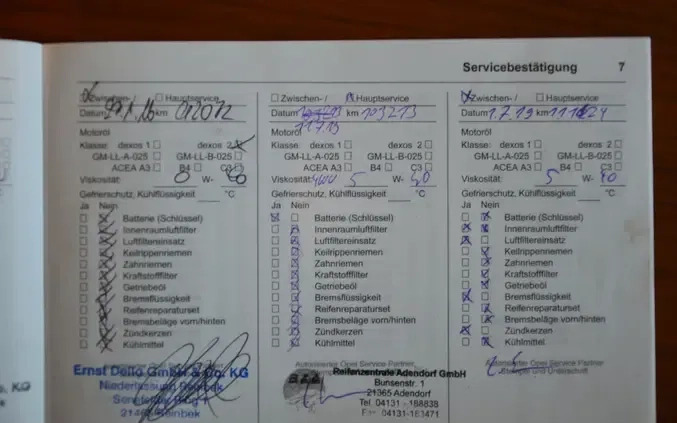 Servicebestätigung 7
Zwischen- / Hauptservice
Datum km
Motoröl
Klasse: dexos 1 dexos 2
GM-LL-A-025 GM-LL-B-025
ACEA A3 B4 C3
Viskosität: W-
Gefrierschutz, Kühlflüssigkeit °C
Ja Nein
Batterie (Schlüssel)
Innenraumluftfilter
Luftfiltereinsatz
Keilrippenriemen
Zahnriemen
Kraftstofffilter
Getriebeöl
Bremsflüssigkeit
Reifenreparaturset
Bremsbeläge vorn/hinten
Zündkerzen
Kühlmittel
Ernst Dello GmbH & Co. KG
Niederlassung Reinbek
Reinbek
Zwischen- / Hauptservice
Datum km 103213
11.7.19
Motoröl
Klasse: dexos 1 dexos 2
GM-LL-A-025 GM-LL-B-025
ACEA A3 B4 C3
Viskosität: 5 W-
Gefrierschutz, Kühlflüssigkeit °C
Ja Nein
Batterie (Schlüssel)
Innenraumluftfilter
Luftfiltereinsatz
Keilrippenriemen
Zahnriemen
Kraftstofffilter
Getriebeöl
Bremsflüssigkeit
Reifenreparaturset
Bremsbeläge vorn/hinten
Zündkerzen
Kühlmittel
Autorisierter Opel Service Partner
Reifenzentrale Adendorf GmbH
Bunsenstr. 1
21365 Adendorf
Tel. 04131 - 188838
Fax 04131-183471
Zwischen- / Hauptservice
Datum 1.7.19 km
Motoröl
Klasse: dexos 1 dexos 2
GM-LL-A-025 GM-LL-B-025
ACEA A3 B4 C3
Viskosität: 5 W- 40
Gefrierschutz, Kühlflüssigkeit °C
Ja Nein
Batterie (Schlüssel)
Innenraumluftfilter
Luftfiltereinsatz
Keilrippenriemen
Zahnriemen
Kraftstofffilter
Getriebeöl
Bremsflüssigkeit
Reifenreparaturset
Bremsbeläge vorn/hinten
Zündkerzen
Kühlmittel
Autorisierter Opel Service Partner
Stempel und Unterschrift